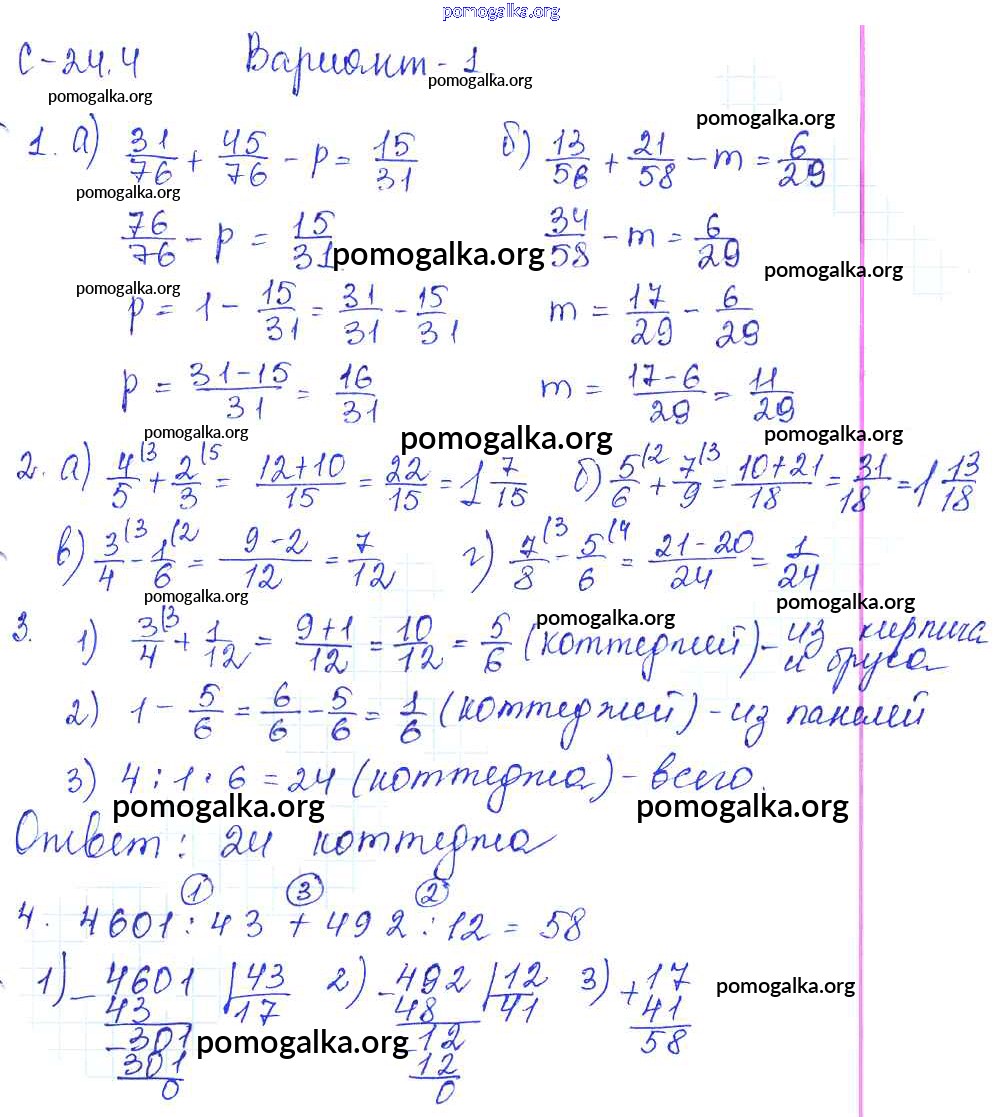 pomogalka.org
С-24.4 Вариант-1
pomogalka.org
pomogalka.org
pomogalka.org
1. а) 31/76 + 45/76 - p = 15/31 б) 13/58 + 21/58 - m = 6/29
pomogalka.org
76/76 - p = 15/31 34/58 - m = 6/29
pomogalka.org
pomogalka.org
pomogalka.org
p = 1 - 15/31 = 31/31 - 15/31 m = 17/29 - 6/29
p = 31-15/31 = 16/31 m = 17-6/29 = 11/29
pomogalka.org
pomogalka.org
pomogalka.org
2. а) 4/5 (3 + 2/3 (5 = 12+10/15 = 22/15 = 1 7/15 б) 5/6 (2 + 7/9 (3 = 10+21/18 = 31/18 = 1 13/18
в) 3/4 (3 - 1/6 (2 = 9-2/12 = 7/12 г) 7/8 (3 - 5/6 (4 = 21-20/24 = 1/24
pomogalka.org
pomogalka.org
3. 1) 3/4 (3 + 1/12 = 9+1/12 = 10/12 = 5/6 (коттеджей) - из кирпича
и бруса
2) 1 - 5/6 = 6/6 - 5/6 = 1/6 (коттеджей) - из панелей
3) 4 : 1 · 6 = 24 (коттеджа) - всего.
pomogalka.org
pomogalka.org
Ответ: 24 коттеджа
1 3 2
4. 4601 : 43 + 492 : 12 = 58
1) 4601 | 43 2) 492 | 12 3) + 17
43 17 48 41 41
- 301 12 58
301 12
0 0
pomogalka.org
pomogalka.org